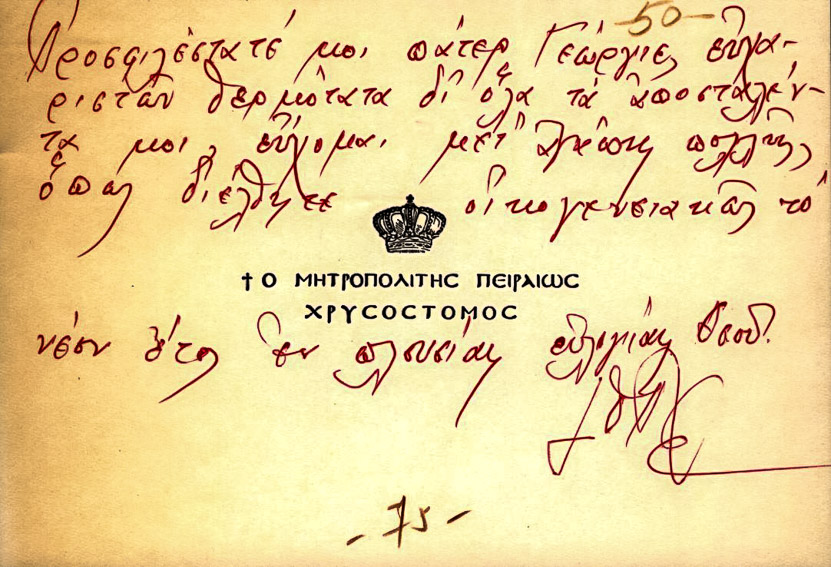 -50-
Προσφιλέστατέ μοι πάτερ Γεώργιε, εὐχα-
ριστῶν θερμότατα δι' ὅλα τὰ ἀποσταλέν-
τα μοι, εὔχομαι μετ' ἀγάπης πολλῆς,
ὅπως διέλθητε οἰκογενειακῶς τὸ
† Ο ΜΗΤΡΟΠΟΛΙΤΗΣ ΠΕΙΡΑΙΩΣ
ΧΡΥΣΟΣΤΟΜΟΣ
νέον ἔτος ἐν πλουσίαις εὐλογίαις Θεοῦ.
-75-